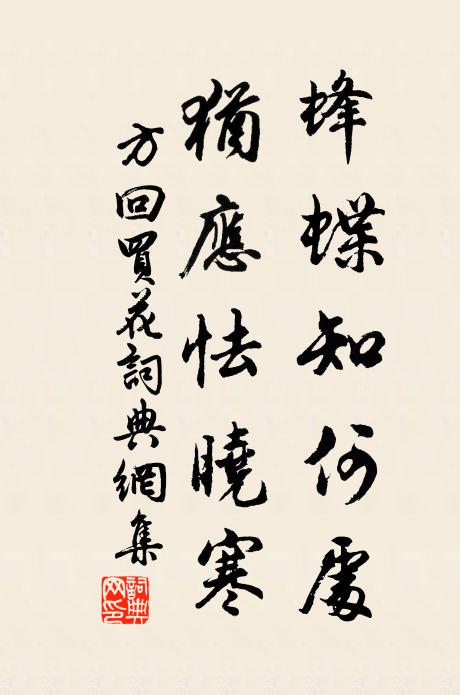 蜂蝶知何處
猶應怯曉寒
方回買花詞典網集
詞典網印